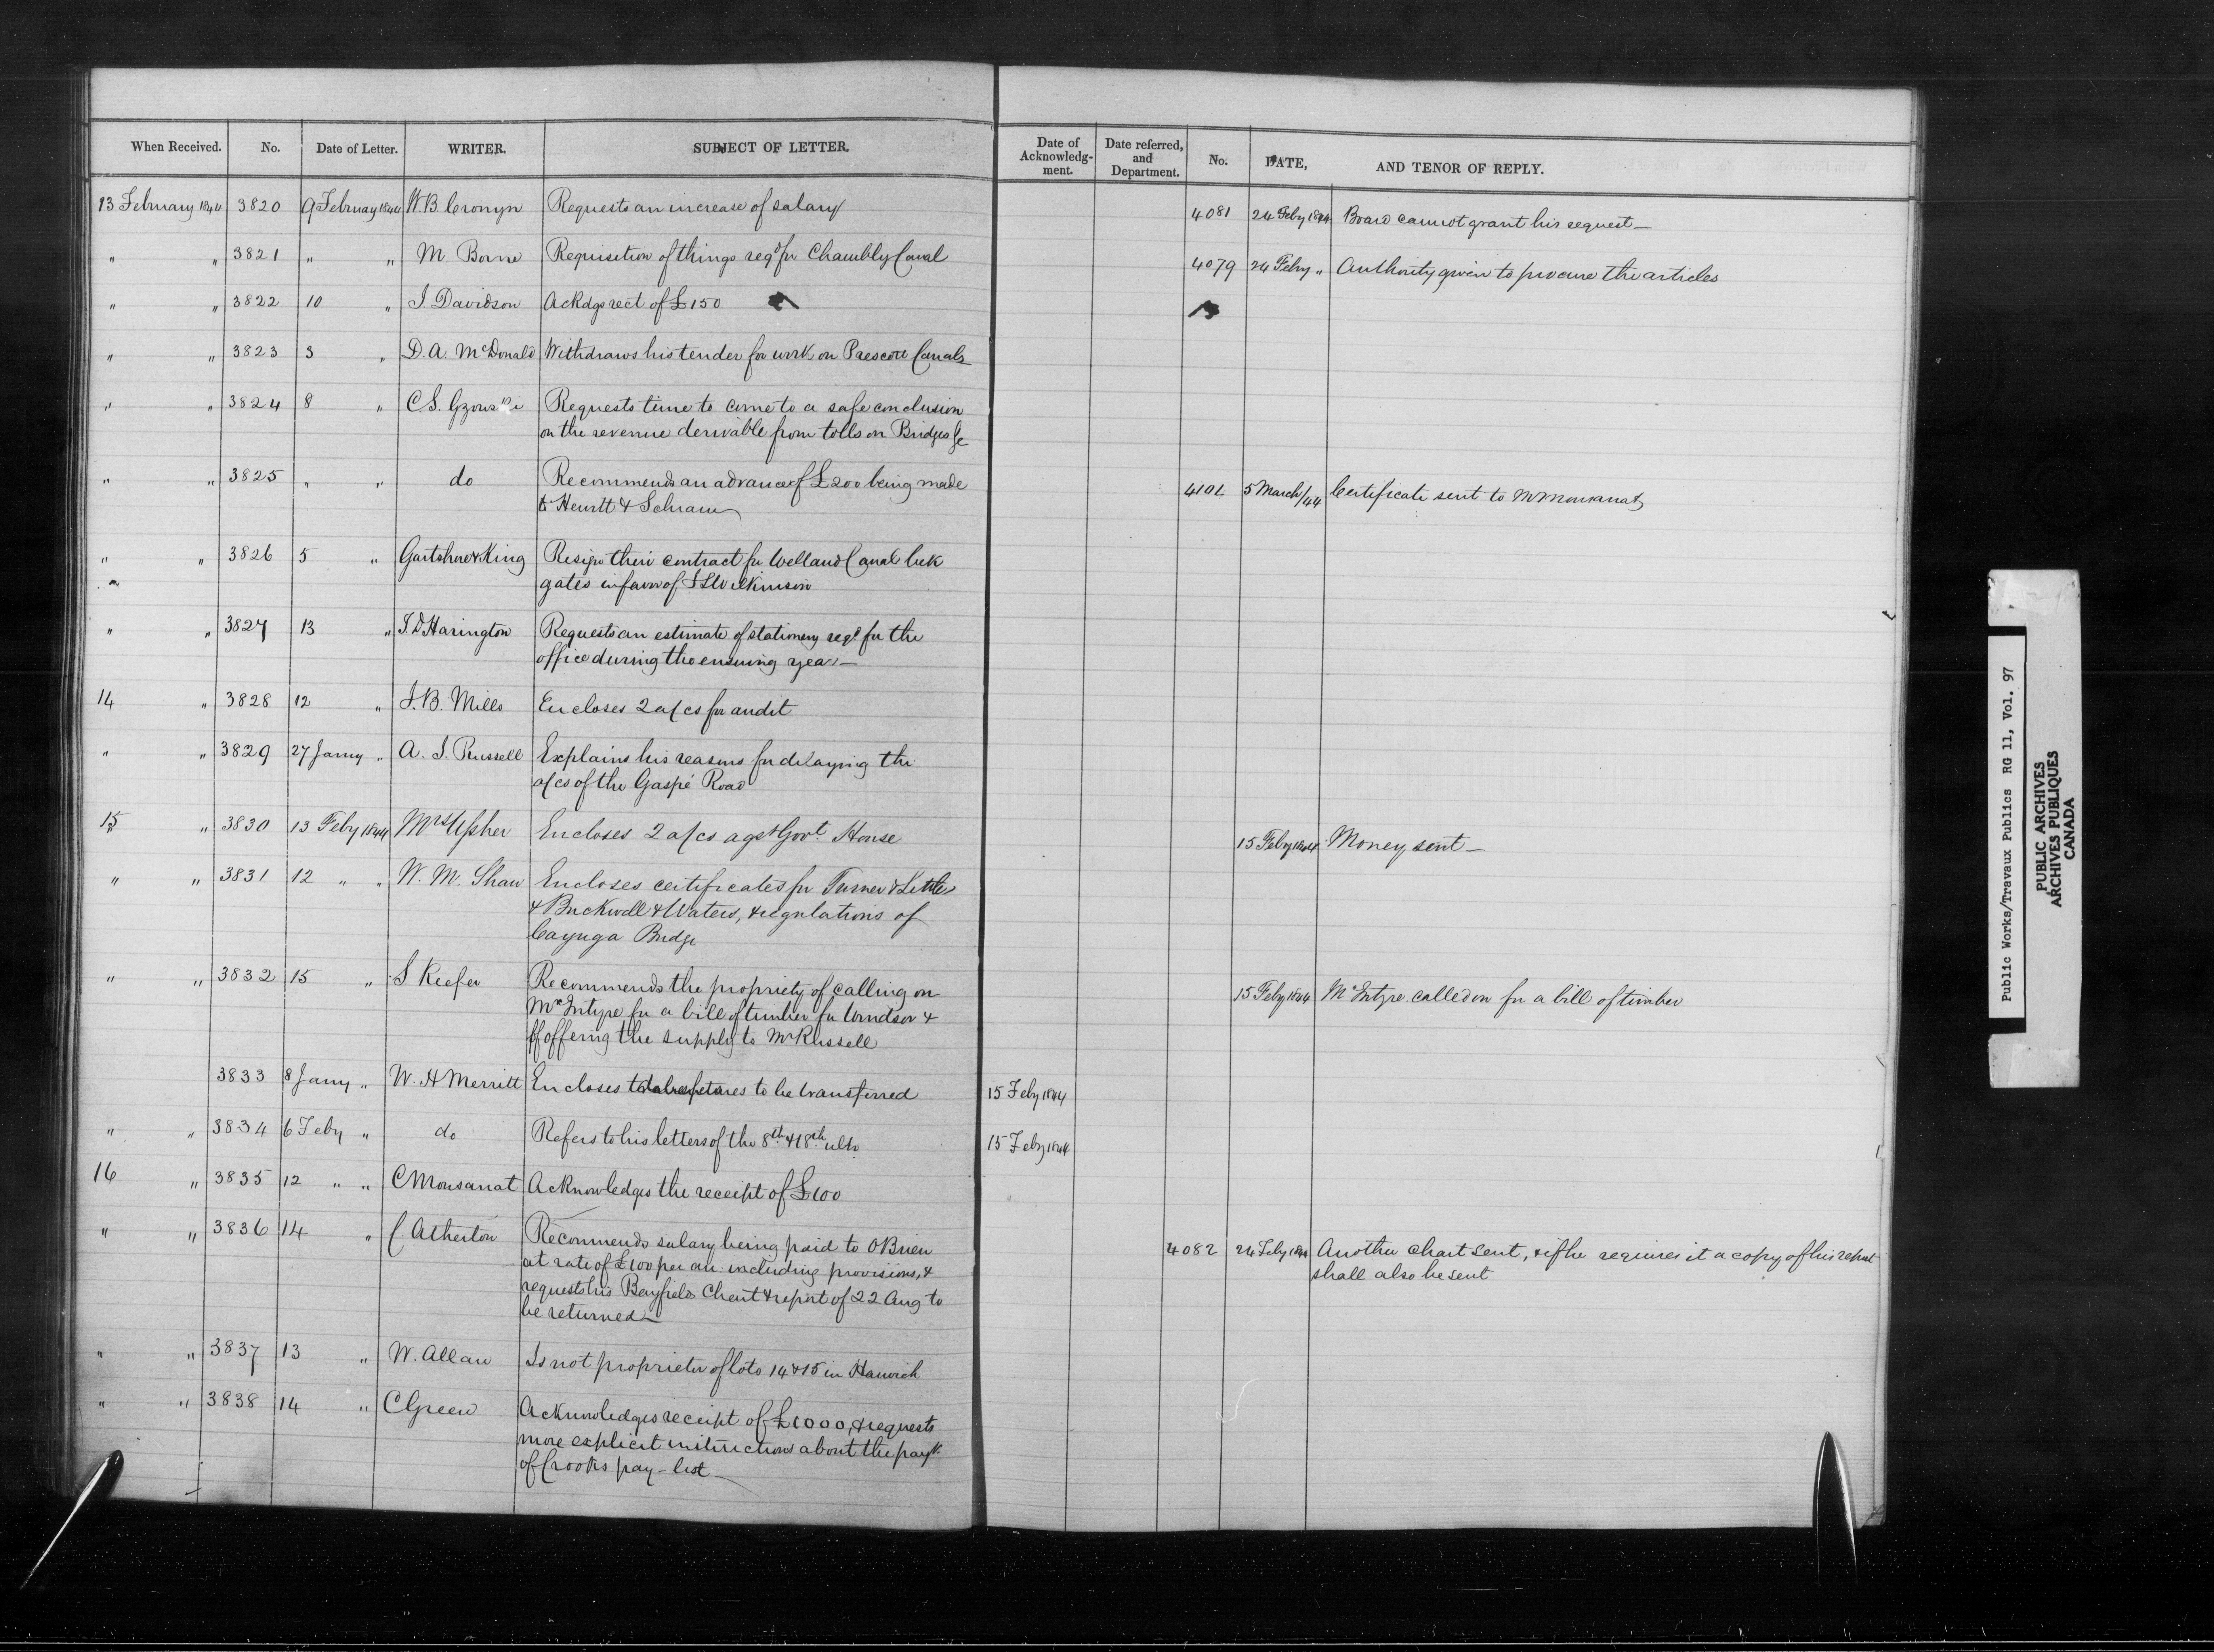 When Received. No. Date of Letter. WRITER. SUBJECT OF LETTER. Date of Acknowledg-ment. Date referred, and Department. No. DATE, AND TENOR OF REPLY.
13 February 1844 3820 9 February 1844 W.B. Cronyn Requests an increase of salary 4081 24 Feby 1844 Board cannot grant his request —
" " 3821 " " M. Borne Requisition of things reqd for Chambly Canal 4079 24 Feby " Authority given to procure the articles
" " 3822 10 " J. Davidson Ackdgs rect of £150
" " 3823 3 " D.A. McDonald Withdraws his tender for work on Prescott Canals
" " 3824 8 " C.S. Gzowski Requests time to come to a safe conclusion
on the revenue derivable from tolls on Bridges &c
" " 3825 " " do Recommends an advance of £200 being made 4101 5 March/44 Certificate sent to Mr Monsanat
to Hewitt & Schram
" " 3826 5 " Gartshore & King Resign their contract for Welland Canal lock
gates in favor of J L Wilkinson
" " 3827 13 " J.D Harington Requests an estimate of stationery reqd for the
office during the ensuing year —
14 " 3828 12 " J.B. Mills Encloses 2 a/cs for audit
" " 3829 27 Jany " A. J. Russell Explains his reasons for delaying the
a/cs of the Gaspé Road
15 " 3830 13 Feby 1844 Mrs Usher Encloses 2 a/cs agst Govt House 15 Feby 1844 Money sent —
" " 3831 12 " " W. M. Shaw Encloses certificates for Turner & Little
& Buckwell & Waters, & regulations of
Cayuga Bridge
" " 3832 15 " S Keefer Recommends the propriety of calling on 15 Feby 1844 McIntyre called on for a bill of timber
McIntyre for a bill of timber for Windsor &
of offering the supply to Mr Russell
3833 8 Jany " W. H Merritt Encloses debentures to be transferred 15 Feby 1844
" " 3834 6 Feby " do Refers to his letters of the 8th & 18th ulto 15 Feby 1844
16 " 3835 12 " " C Monsanat Acknowledges the receipt of £100
" " 3836 14 " C. Atherton Recommends salary being paid to O'Brien 4082 24 Feby 1844 Another chart sent, & if he requires it a copy of his report
at rate of £100 per an. including provisions, & shall also be sent
requests his Bayfields Chart & report of 22 Aug to
be returned —
" " 3837 13 " W. Allan Is not proprietor of lots 14 & 15 in Harwich
" " 3838 14 " C Green Acknowledges receipt of £1000, & requests
more explicit instructions about the payt
of Crooks pay-list —
Public Works/Travaux Publics RG 11, Vol. 97
PUBLIC ARCHIVES
ARCHIVES PUBLIQUES
CANADA